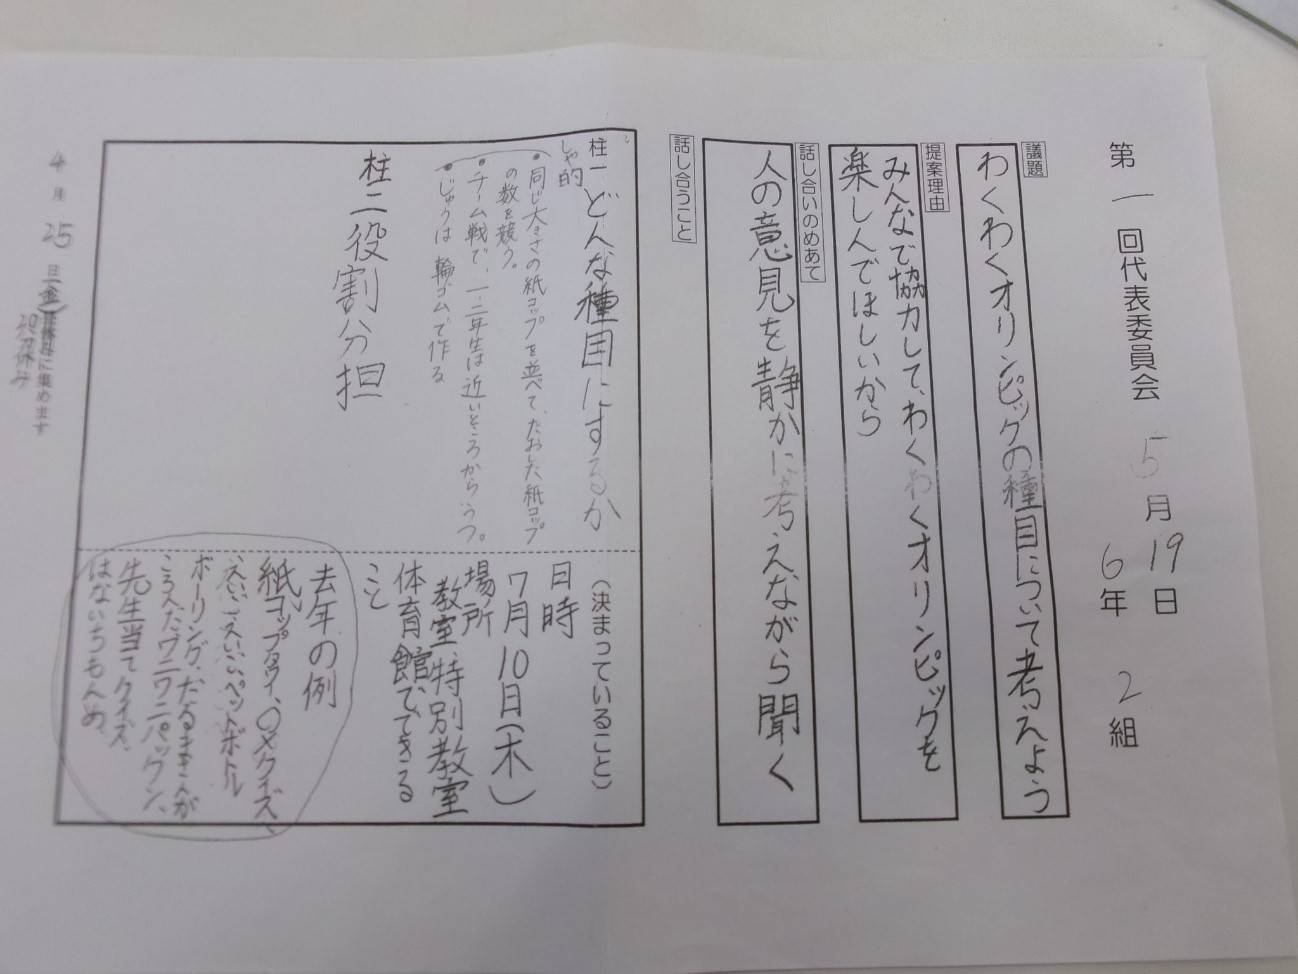 第一回代表委員会
5月19日
6年 2組
議題
わくわくオリンピックの種目について考えよう
提案理由
みんなで協力して、わくわくオリンピックを
楽しんでほしいから
話し合いのめあて
人の意見を静かに考えながら聞く
話し合うこと
柱一 どんな種目にするか
しゃ的
・同じ大きさの紙コップを並べて、たおした紙コップ
の数を競う。
・チーム戦で、一、二年生は近いところからうつ。
・じゅうは輪ゴムで作る
柱二 役割分担
(決まっていること)
日時
7月10日(木)
場所
教室、特別教室
体育館でできる
こと
去年の例
紙コップタワー、○×クイズ、
ペットボトル
ボーリング、だるまさんが
ころんだ、ワニワニパックン、
先生当てクイズ、
はないちもんめ、
4月25日(金)
に集めます